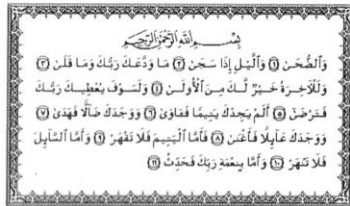 بِسْمِ اللَّهِ الرَّحْمَٰنِ الرَّحِيمِ
وَٱلضُّحَىٰ ١ وَٱلَّيْلِ إِذَا سَجَىٰ ٢ مَا وَدَّعَكَ رَبُّكَ وَمَا قَلَىٰ ٣
وَلَلْآخِرَةُ خَيْرٌ لَّكَ مِنَ ٱلْأُولَىٰ ٤ وَلَسَوْفَ يُعْطِيكَ رَبُّكَ
فَتَرْضَىٰ ٥ أَلَمْ يَجِدْكَ يَتِيمًا فَـَٔاوَىٰ ٦ وَوَجَدَكَ ضَالًّا فَهَدَىٰ ٧
وَوَجَدَكَ عَآئِلًا فَأَغْنَىٰ ٨ فَأَمَّا ٱلْيَتِيمَ فَلَا تَقْهَرْ ٩ وَأَمَّا ٱلسَّآئِلَ
فَلَا تَنْهَرْ ١٠ وَأَمَّا بِنِعْمَةِ رَبِّكَ فَحَدِّثْ ١١